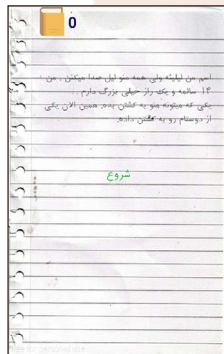 0
اسم من لیلیئه ولی همه منو لیل صدا میکنن . من
۱۴ سالمه و یک راز خیلی بزرگ دارم . .
که میتونه منو به کشتن بده. همین الان یکی
از دوستام رو به کشتن داده.
شروع